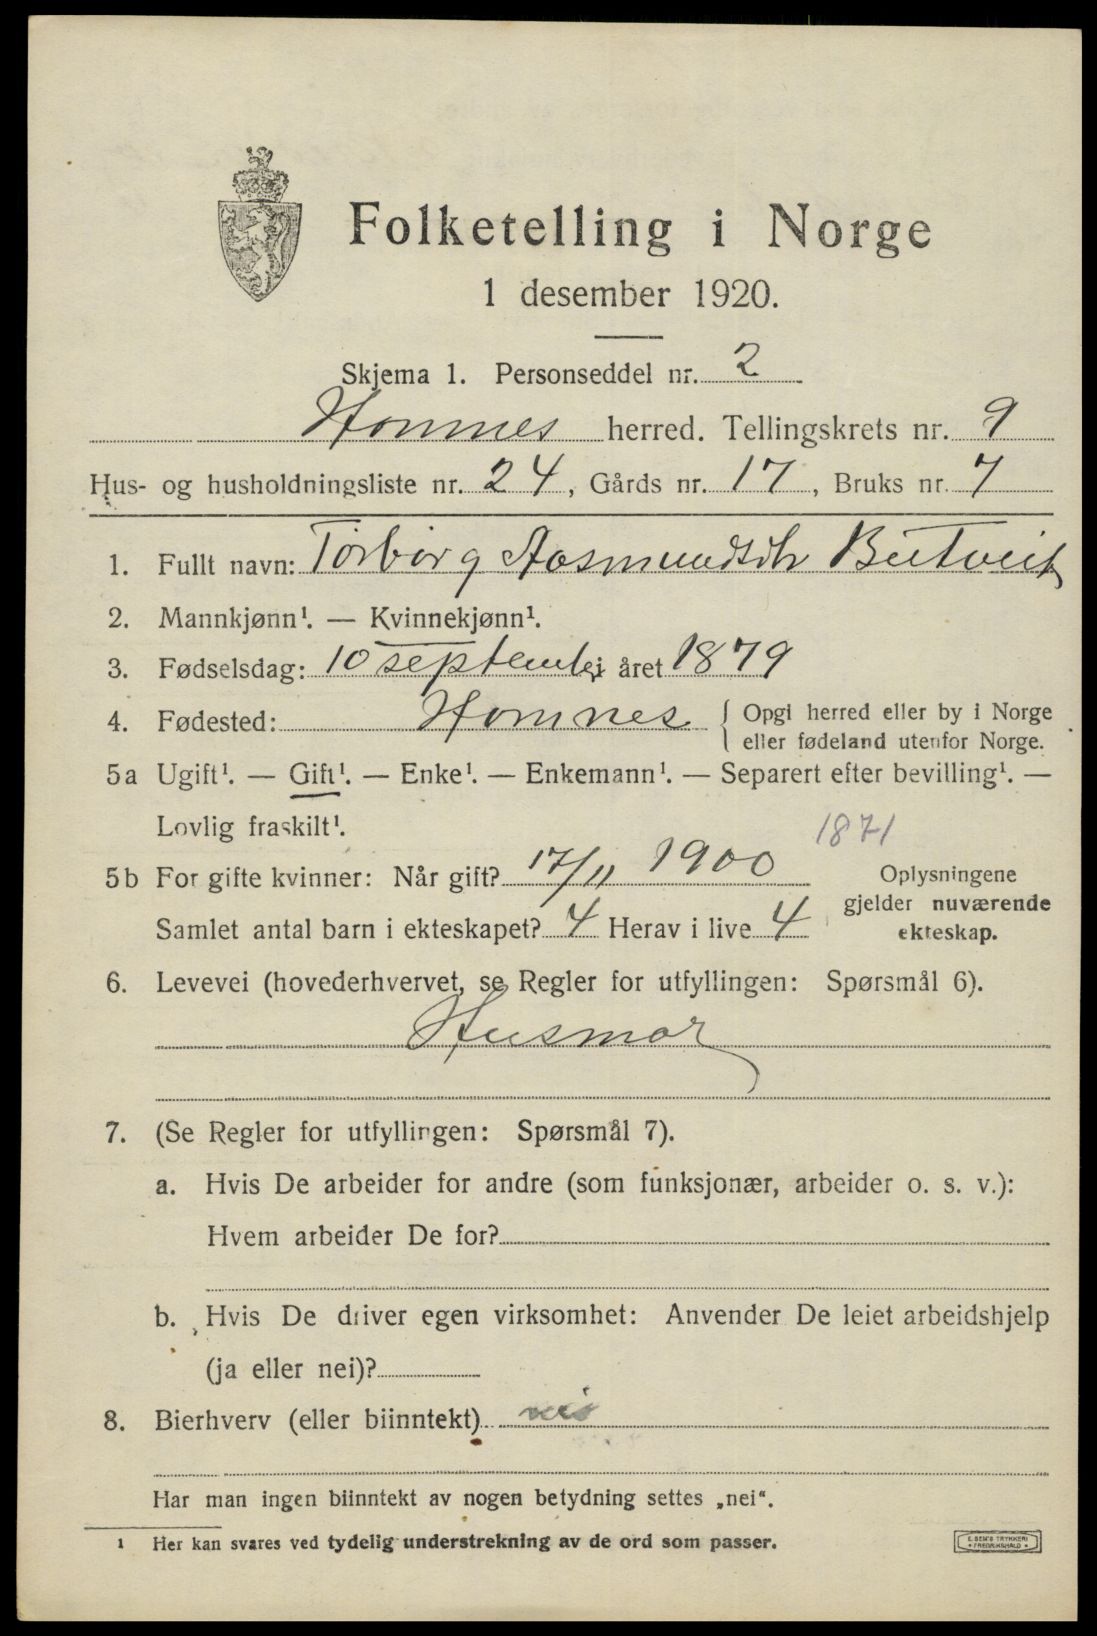 Folketelling i Norge
1 desember 1920.
Skjema 1. Personseddel nr. 2
Homnes herred. Tellingskrets nr. 9
Hus- og husholdningsliste nr. 24, Gårds nr. 17, Bruks nr. 7
1. Fullt navn: Torborg Aasmundsdtr Butveit
2. Mannkjønn¹. — Kvinnekjønn¹.
3. Fødselsdag: 10 september året 1879
4. Fødested: Homnes { Opgi herred eller by i Norge
eller fødeland utenfor Norge.
5a Ugift¹. — Gift¹. — Enke¹. — Enkemann¹. — Separert efter bevilling¹. —
Lovlig fraskilt¹.
1871
5b For gifte kvinner: Når gift? 17/11 1900 Oplysningene
gjelder nuværende
Samlet antal barn i ekteskapet? 4 Herav i live 4 ekteskap.
6. Levevei (hovederhvervet, se Regler for utfyllingen: Spørsmål 6).
Husmor
7. (Se Regler for utfyllingen: Spørsmål 7).
a. Hvis De arbeider for andre (som funksjonær, arbeider o. s. v.):
Hvem arbeider De for?
b. Hvis De driver egen virksomhet: Anvender De leiet arbeidshjelp
(ja eller nei)?
8. Bierhverv (eller biinntekt) nei
Har man ingen biinntekt av nogen betydning settes „nei“.
¹ Her kan svares ved tydelig understrekning av de ord som passer.
E. SEM'S TRYKKERI
FREDRIKSHALD